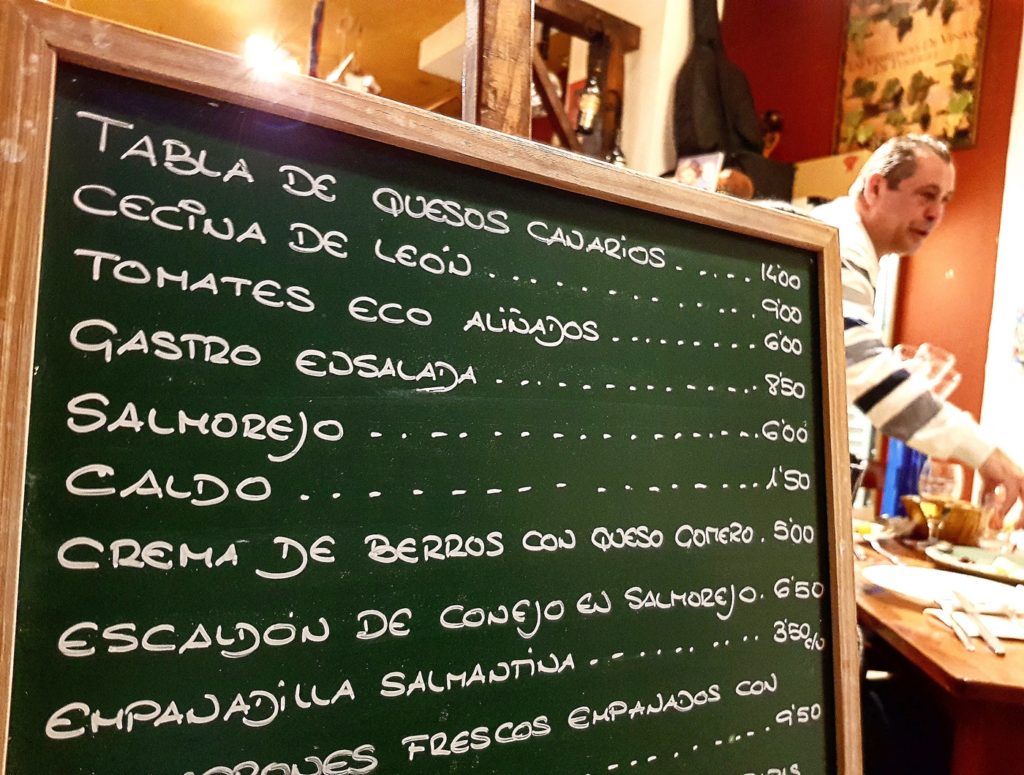 TABLA DE QUESOS CANARIOS ..... 14'00
CECINA DE LEÓN ............ 9'00
TOMATES ECO ALIÑADOS .......... 6'00
GASTRO ENSALADA .............. 8'50
SALMOREJO ................... 6'00
CALDO ..................... 1'50
CREMA DE BERROS CON QUESO GOMERO . 5'00
ESCALDÓN DE CONEJO EN SALMOREJO . 6'50
EMPANADILLA SALMANTINA .......... 3'50 c/u
FRESCOS EMPANADOS CON
....... 9'50